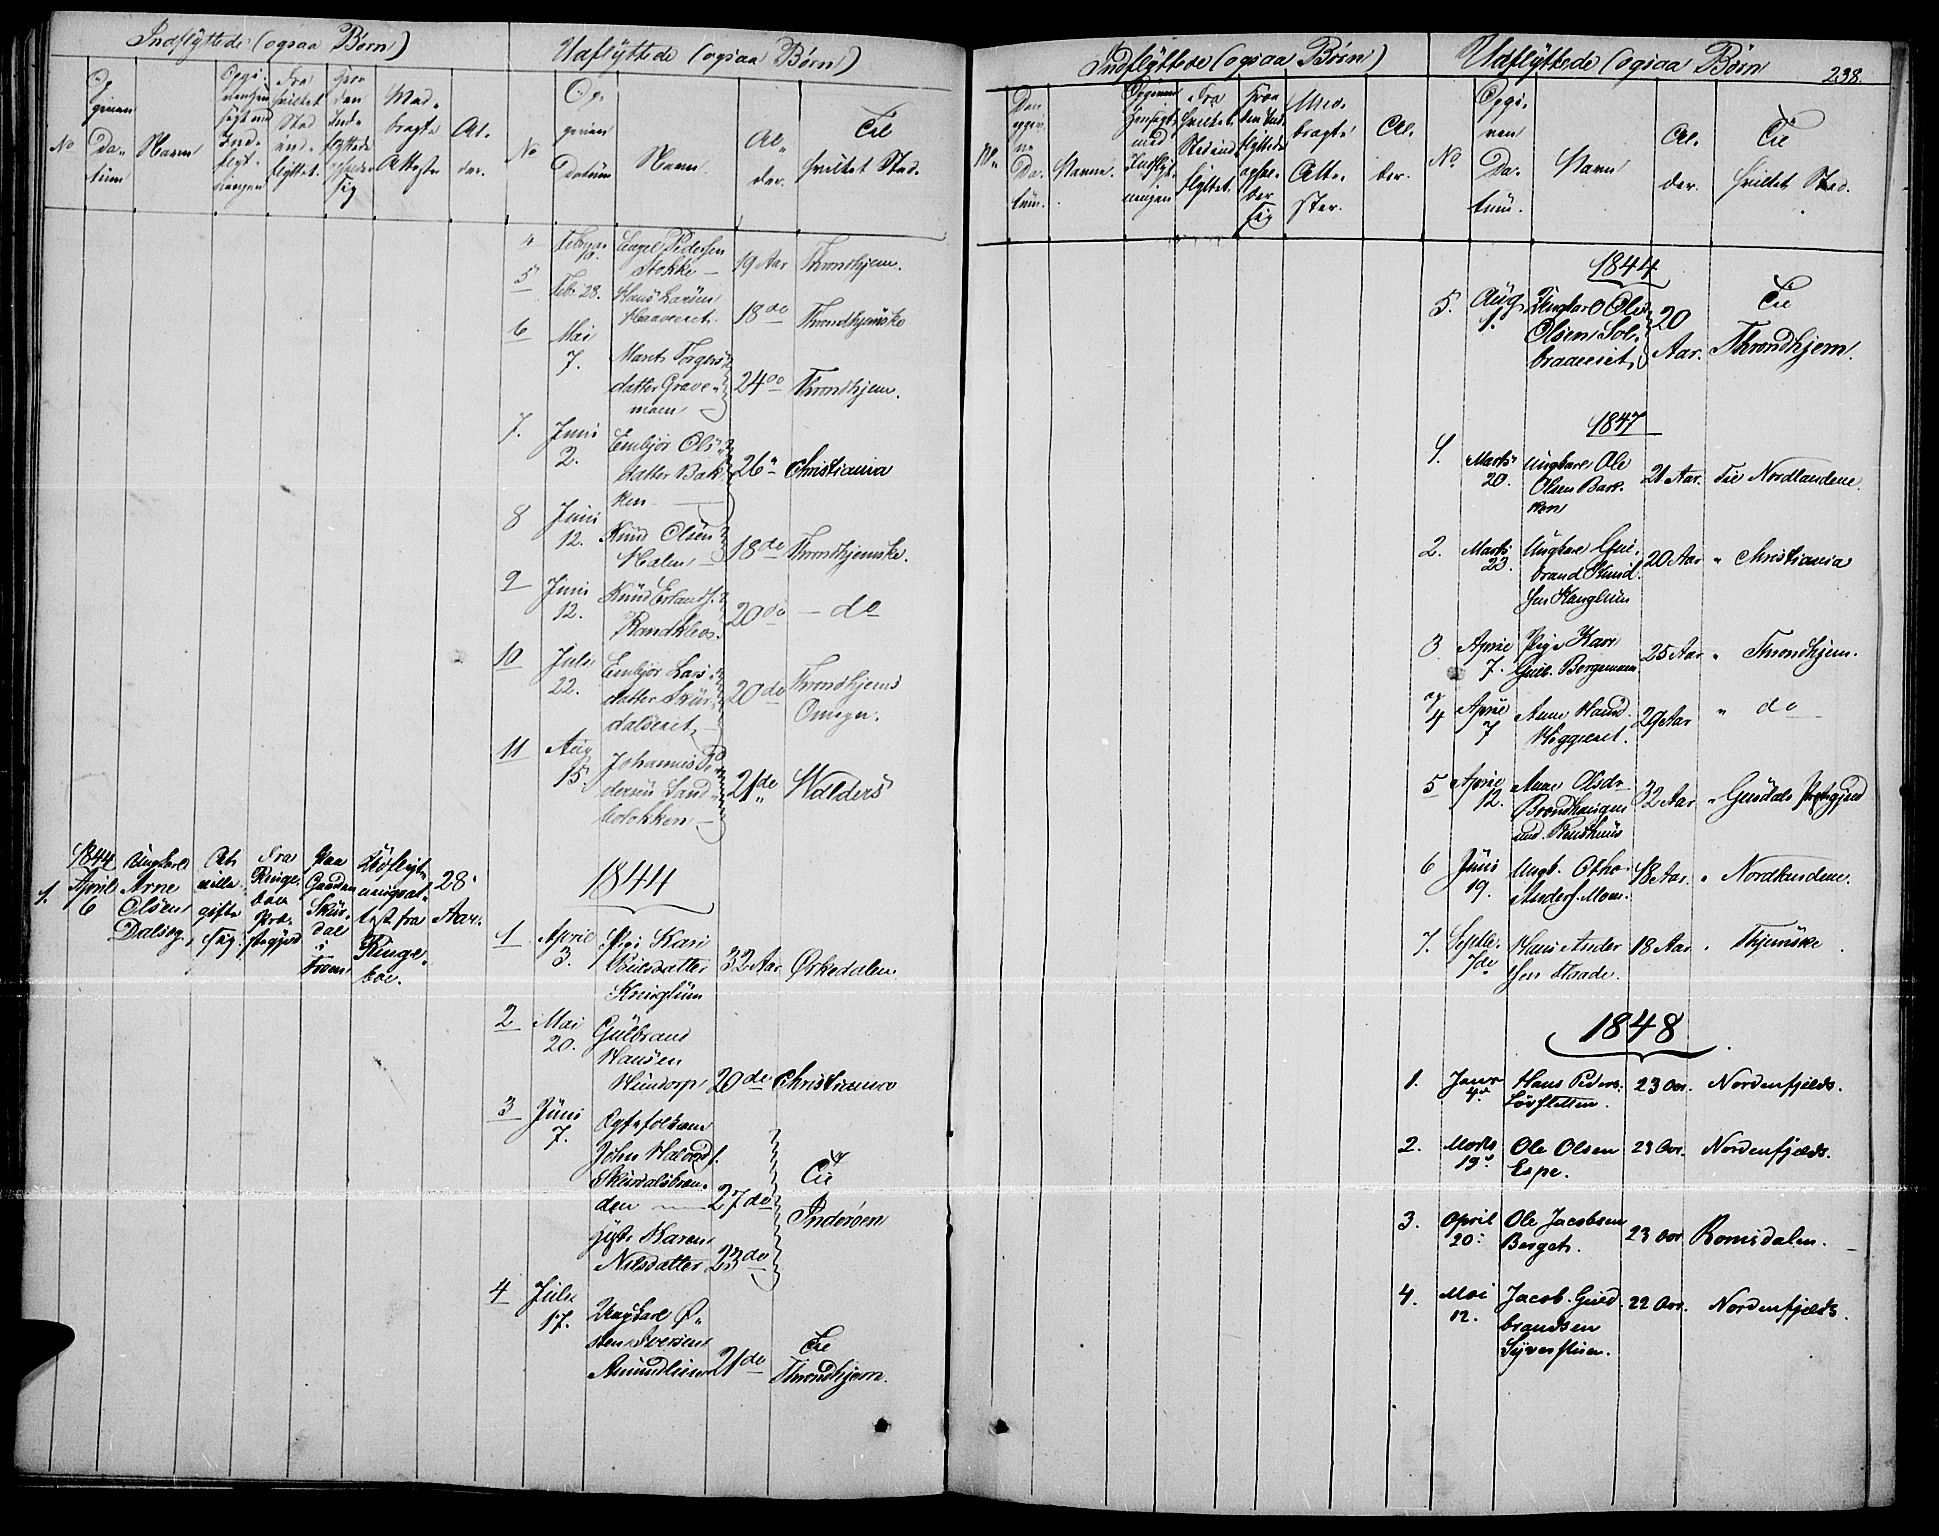 Indflyttede (ogsaa Børn)
No
Op
given
Da-
tum
Navn
Fra
hvilket
Sted
ind-
flyttet.
Med-
bragte
Atteste
Al-
der.
1844
1. April
6
Ungkarl
Arne
Olsen
Dalseg
At
ville
gifte
sig.
Fra
Ringe-
boe
Præ-
stegjeld
Paa
Gaarden
Skür-
dal
i
Froen
Udflyt-
ningsat-
test fra
Ringe-
boe.
28
Aar.
Udflyttede (ogsaa Børn)
No
Op-
given
Datum
Navn.
Al-
der.
Til
hvilket Sted.
4 Februar
10. Engel Pedersen
Stokke — 19 Aar Throndhjem.
5 Feb: 28. Hans Larsen
18 do Throndhjemske
6 Mai
7. Marit Torgers-
datter Grave-
moen 24 do Throndhjem.
7. Juni
2. Embjør Ols-
datter Bak-
ken — 26 " Christiania
8 Juni
12. Knud Olsen
18 de Throndhjemske.
9 Juni
12. Knud Erlands.
Randkleo. 20 do — do
10 Juli
22. Embjør Lars-
datter Skür-
dalseiet 20 do Throndhjems
Omegn.
11 Aug
15. Johannes Pe-
dersen Sand-
bolokken — 21 de Walders
1844
1 April
3. Pige Kari
datter
32 Aar Ørkedalen
2 Mai
20. Gulbrand
Hansen
Hundorp 20 de Christiania
3 Juni
7. Ægtefolkene
John
Skurdalsbræn-
den — 27 do
Karen
Nilsdatter 23 do
Til
Inderøen
4 Juli
17. Ungkarl Ø-
sten Iversen
Amundlien 21 do
Til
Throndhjem.
Indflyttede (ogsaa Børn)
No
Den
opgiv-
ne
Da-
tum.
Navne.
Opgiven
Hensigt
med
Indflyt-
ningen
Fra
hvilket
Sted ind-
flyttet.
Med-
bragte
Atte-
ster.
Al-
der.
Udflyttede (ogsaa Børn
238.
No
Opgi-
ven
Da-
tum.
Navn
Al-
der.
Til
hvilket Sted.
1844
5. Aug
1. Ungkarl Ole
Olsen Sol-
braaeiet, 20
Aar. Til
Throndhjem.
1847
1. Marts
20. Ungkarl Ole
Olsen Bak-
ken 21 Aar. Til Nordlandene.
2. Marts
23. Ungkarl Gul-
brand Knud-
sen 20 Aar " Christiania
3 April
7. Pige Kari
Gulb. Borgemoen 25 Aar " Throndhjem.
4 April
7 Anne
29 Aar " do
5 April
12. Anne Olsdr
Brandhaugen
32 Aar " Gusdals Præstegjeld
6 Juni
19. Ungk. Otho
Anders. Moen. 18 Aar. " Nordlandene.
7. Septbr.
7de Hans Ander
sen 18 Aar " Thjemske
1848
1. Janr
4de Hans Peders.
23 Aar. Nordenfjelds.
2. Marts
19. Ole Olsen
Espe. 23 Aar. Nordenfjelds.
3. April
20. Ole Jacobsen
Berget. 23 Aar Romsdalen.
4. Mai
12. Jacob Guld-
brandsen
22 Aar. Nordenfjelds.